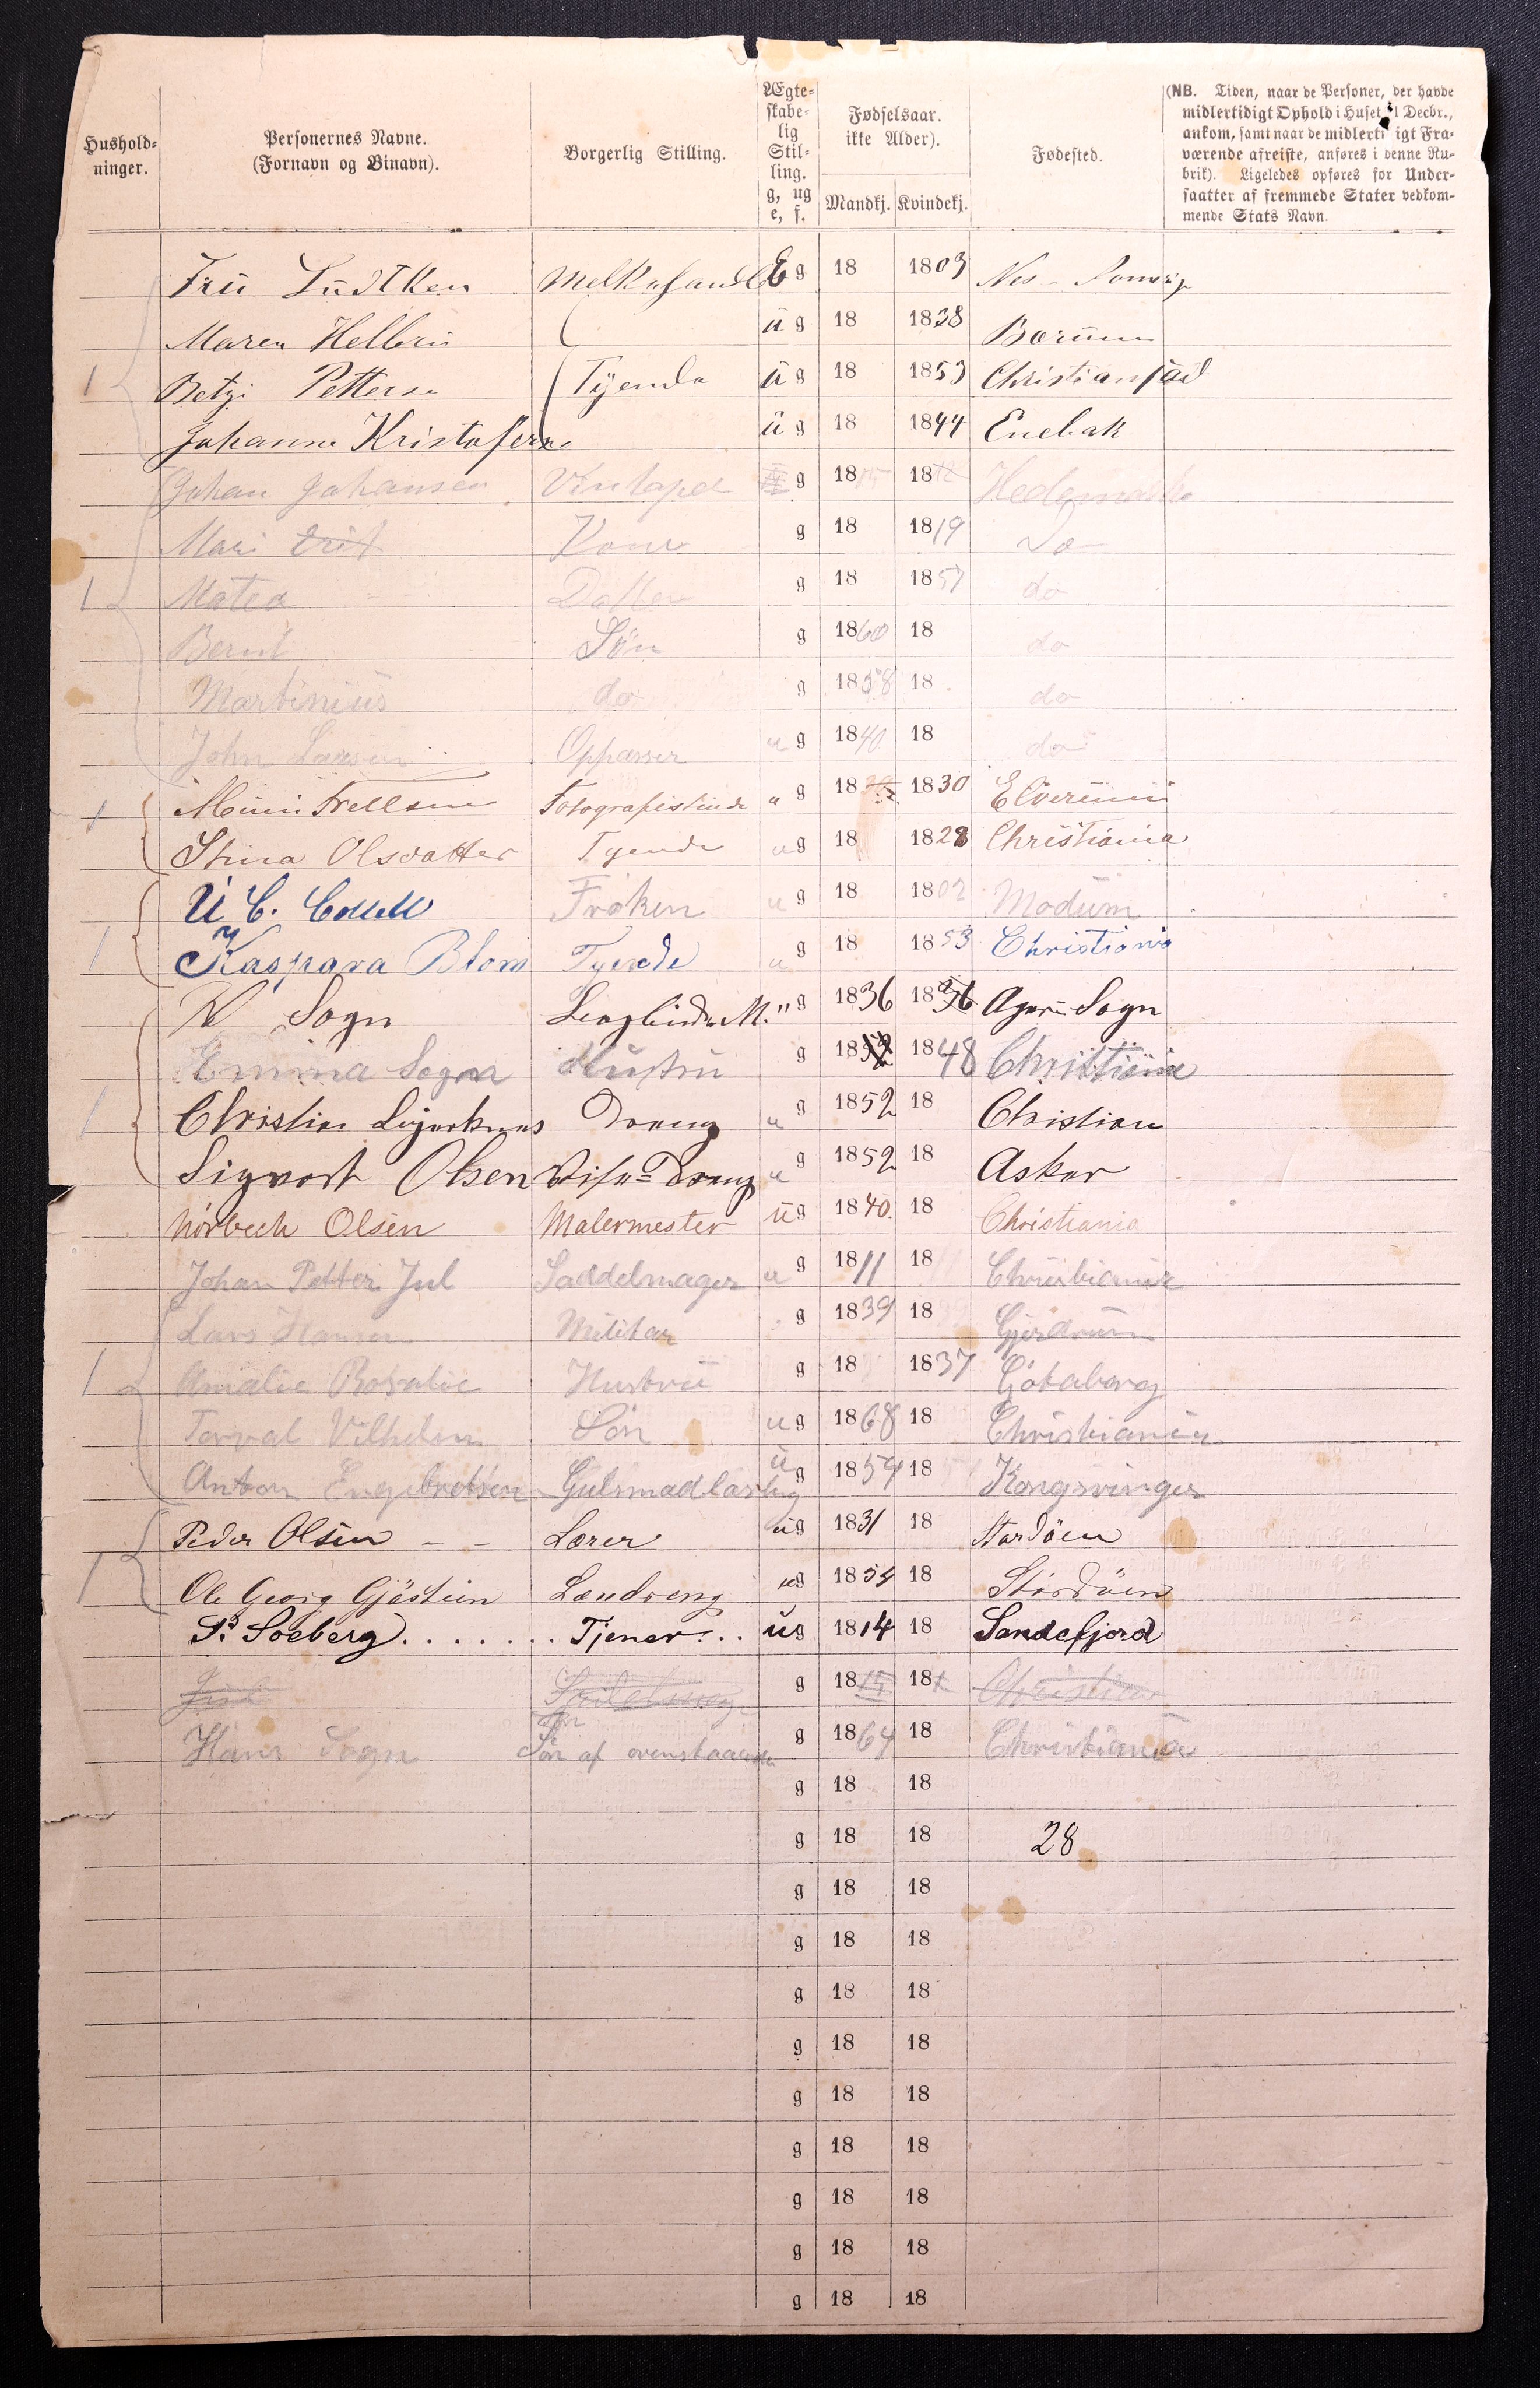 Hushold-
ninger.
Personernes Navne.
(Fornavn og Binavn).
Borgerlig Stilling.
Ægte-
skabe-
lig
Stil-
ling.
g, ug
e, f.
Fødselsaar.
ikke Alder).
Mandkj. Kvindekj.
Fødested.
(NB. Tiden, naar de Personer, der havde
midlertidigt Ophold i Huset 1 Decbr.,
ankom, samt naar de midlerti igt Fra-
værende afreiste, anføres i denne Ru-
brik). Ligeledes opføres for Under-
saatter af fremmede Stater vedkom-
mende Stats Navn.
Frü Lüdtken E g 18 1803 Nes
Maren ü g 18 1838 Bærüm
1 Betzi Tyende ü g 18 1853
Johanne ü g 18 1844 Enebak
Johan Johansen g 18 18 Hedemark
Mari Kone g 18 1819 Do
1 Matea Datter g 18 1857 do
Bernt Sön g 1860 18 do
Martinius do g 1858 18 do
John Larsen Oppasser u g 1840 18 do
Fotografistinde g 18 1830 Elverum
Stina Olsdatter Tyende u g 18 1828 Christiania
U C. Collett Frøken u g 18 1802 Modum
1 Kaspara Blom Tyende u g 18 1853 Christiania
Sogn " g 1836 18 Sogn
Emma Sogn Hustru g 18 1848 Christiania
1 Christian Dreng u g 1852 18 Christian
Sigvart Olsen Visse-Dreng u g 1852 18 Asker
Nörbech Olsen Malermester ü g 1840. 18 Christiania
Johan Petter Jul Saddelmager u g 1811 18 Christiania
Lars Hansen Militær g 1839 18 Gjerdrum
1 Amalie Rosalie Hustru g 18 1837 Götaborg
Torval Vilhelm Sön u g 1868 18 Christiania
Anton Engebretsen Gulsmadlærling ü g 1854 18 Kongsvinger
Peder Olsen - - Lærer ug 1831 18 Stordöen
1 Ole Georg Læudreng ug 1854 18 Stordöen
S. Soeberg. . . . . . . . Tjener . . . ü g 1814 18 Sandefjord
g 18 18
Sön
Hans Sogn Sön af ovenstaaende g 1864 18 Christiania
g 18 18
g 18 18 28
g 18 18
g 18 18
g 18 18
g 18 18
g 18 18
g 18 18
g 18 18
g 18 18
g 18 18